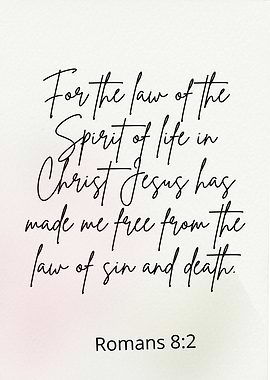 For the law of the
Spirit of life in
Christ Jesus has
made me free from the
law of sin and death.
Romans 8:2